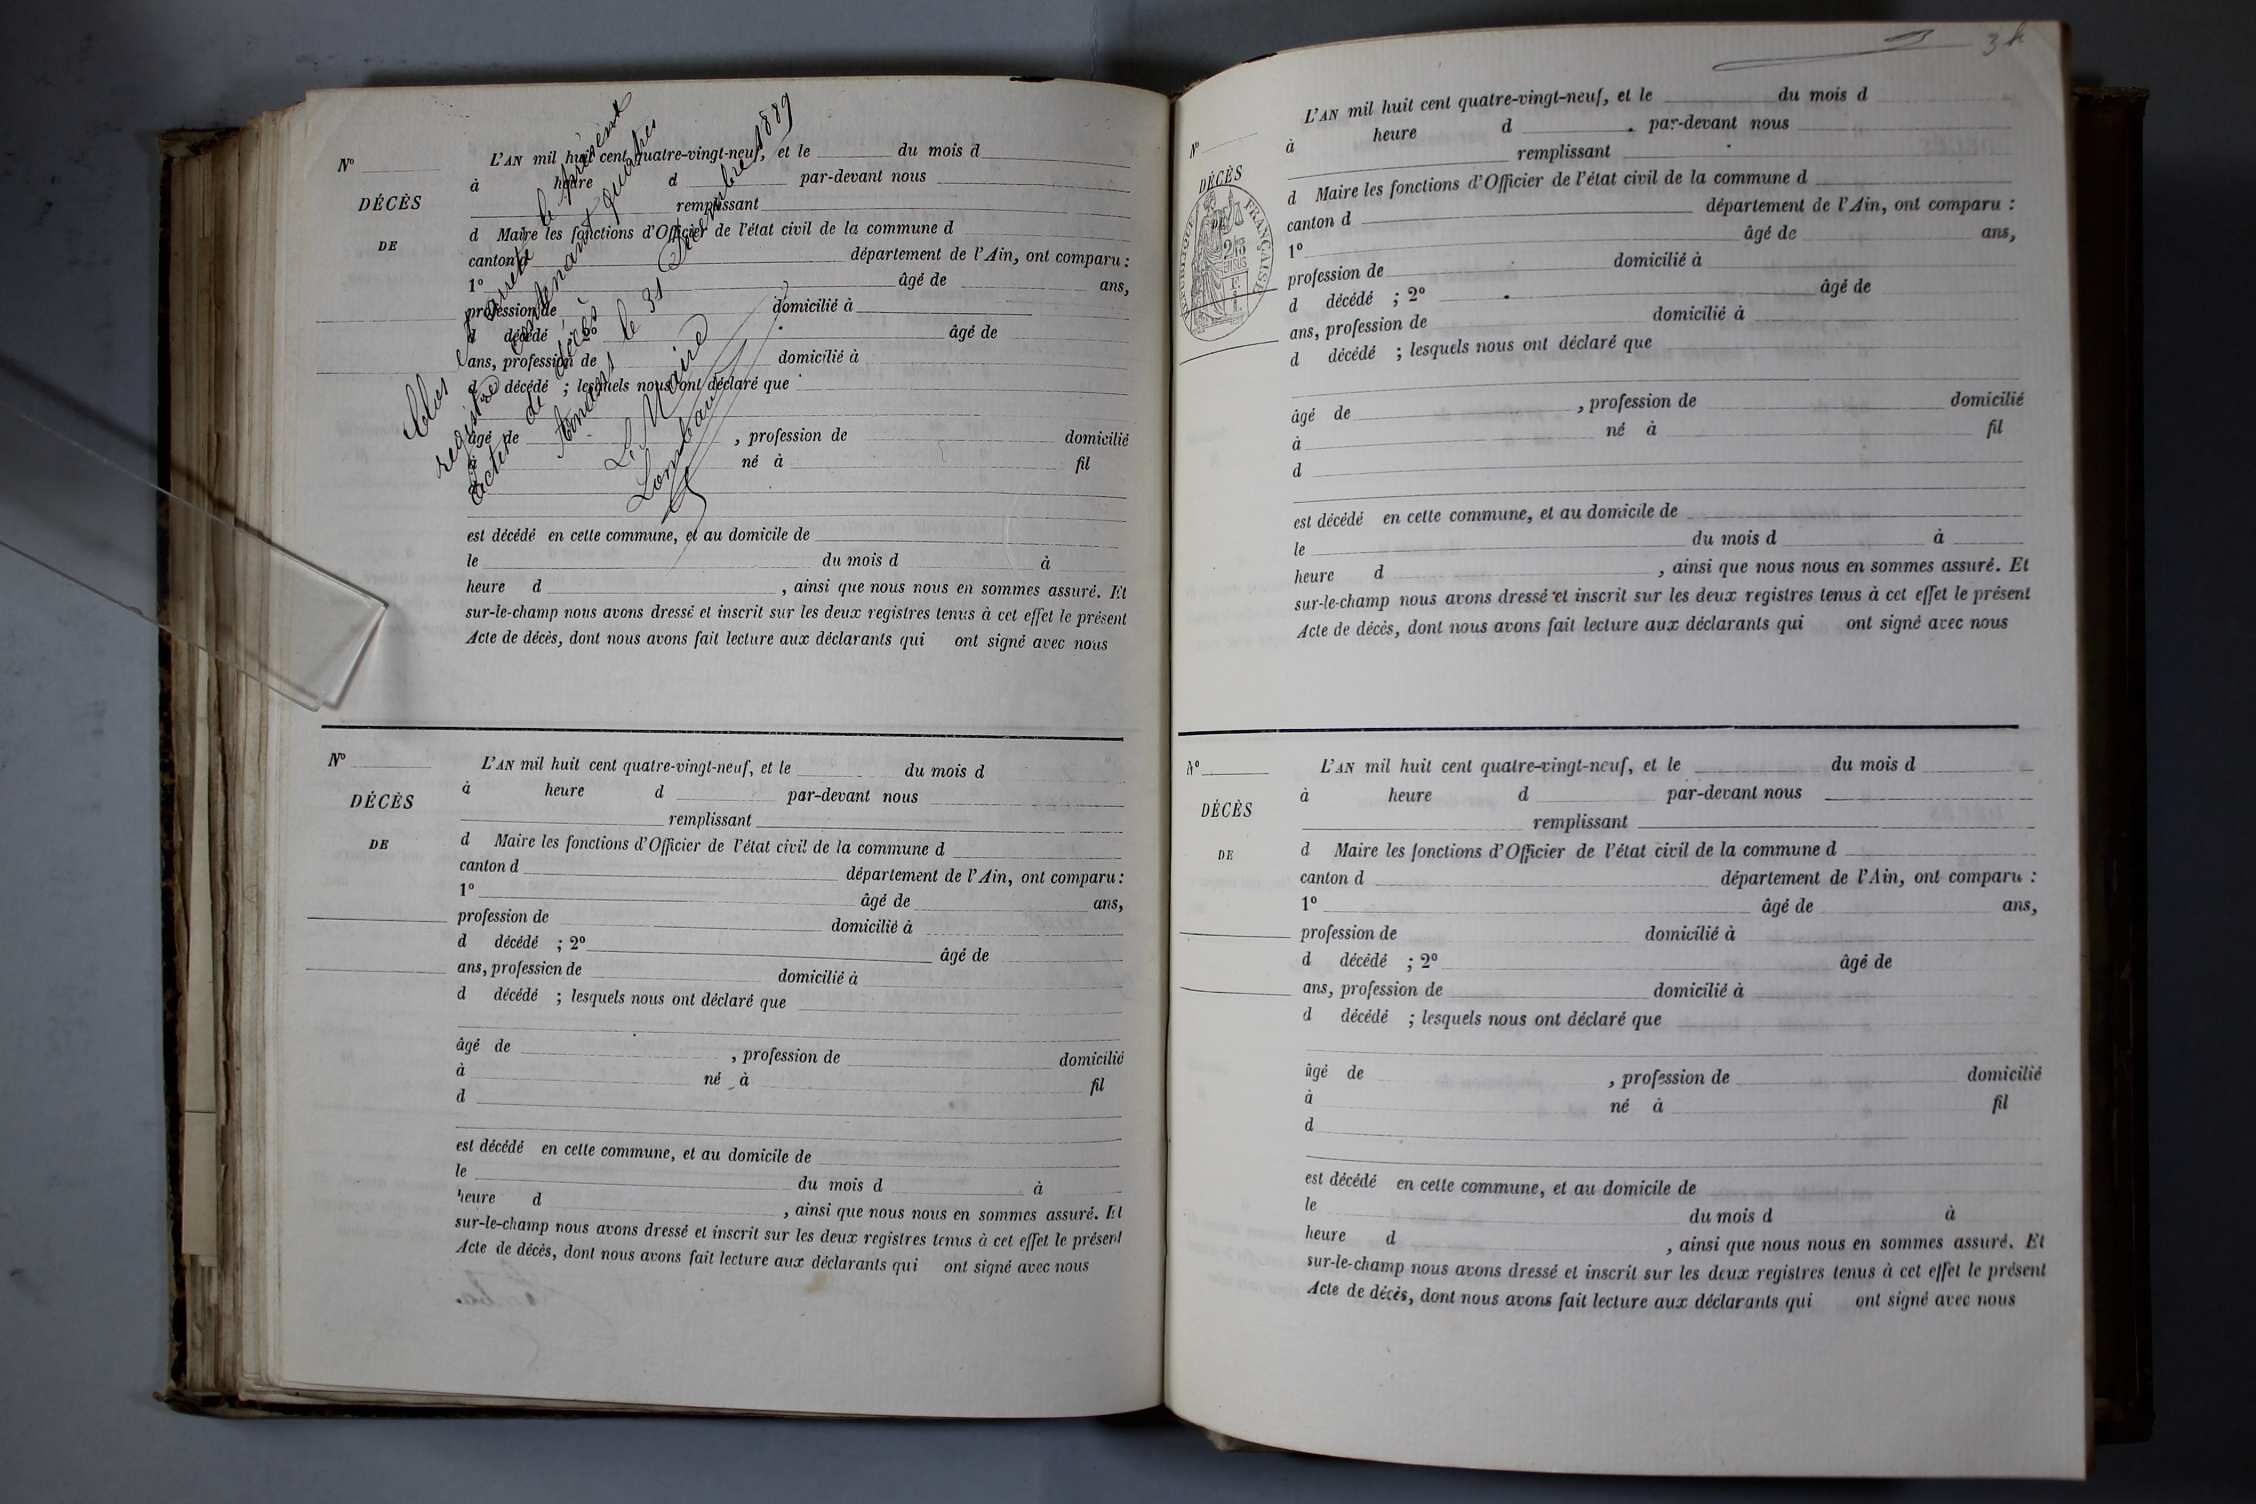 N°
DÉCÈS
DE
L'AN mil huit cent quatre-vingt-neuf, et le du mois d
à heure d par-devant nous
remplissant
d Maire les fonctions d'Officier de l'état civil de la commune d
canton d département de l'Ain, ont comparu :
1° âgé de ans,
profession de domicilié à
d décédé ; 2° âgé de
ans, profession de domicilié à
d décédé ; lesquels nous ont déclaré que
âgé de , profession de domicilié
à né à fil
d
est décédé en cette commune, et au domicile de
le du mois d à
heure d , ainsi que nous nous en sommes assuré. Et
sur-le-champ nous avons dressé et inscrit sur les deux registres tenus à cet effet le présent
Acte de décès, dont nous avons fait lecture aux déclarants qui ont signé avec nous
Clos et arrêté le présent
registre contenant quatre
actes de décès
le 31 Décembre 1889
Le Maire
N°
DÉCÈS
DE
L'AN mil huit cent quatre-vingt-neuf, et le du mois d
à heure d par-devant nous
remplissant
d Maire les fonctions d'Officier de l'état civil de la commune d
canton d département de l'Ain, ont comparu :
1° âgé de ans,
profession de domicilié à
d décédé ; 2° âgé de
ans, profession de domicilié à
d décédé ; lesquels nous ont déclaré que
âgé de , profession de domicilié
à né à fil
d
est décédé en cette commune, et au domicile de
le du mois d à
heure d , ainsi que nous nous en sommes assuré. Et
sur-le-champ nous avons dressé et inscrit sur les deux registres tenus à cet effet le présent
Acte de décès, dont nous avons fait lecture aux déclarants qui ont signé avec nous
N°
DÉCÈS
DE
RÉPUBLIQUE FRANÇAISE
L'AN mil huit cent quatre-vingt-neuf, et le du mois d
à heure d par-devant nous
remplissant
d Maire les fonctions d'Officier de l'état civil de la commune d
canton d département de l'Ain, ont comparu :
1° âgé de ans,
profession de domicilié à
d décédé ; 2° âgé de
ans, profession de domicilié à
d décédé ; lesquels nous ont déclaré que
âgé de , profession de domicilié
à né à fil
d
est décédé en cette commune, et au domicile de
le du mois d à
heure d , ainsi que nous nous en sommes assuré. Et
sur-le-champ nous avons dressé et inscrit sur les deux registres tenus à cet effet le présent
Acte de décès, dont nous avons fait lecture aux déclarants qui ont signé avec nous
N°
DÉCÈS
DE
L'AN mil huit cent quatre-vingt-neuf, et le du mois d
à heure d par-devant nous
remplissant
d Maire les fonctions d'Officier de l'état civil de la commune d
canton d département de l'Ain, ont comparu :
1° âgé de ans,
profession de domicilié à
d décédé ; 2° âgé de
ans, profession de domicilié à
d décédé ; lesquels nous ont déclaré que
âgé de , profession de domicilié
à né à fil
d
est décédé en cette commune, et au domicile de
le du mois d à
heure d , ainsi que nous nous en sommes assuré. Et
sur-le-champ nous avons dressé et inscrit sur les deux registres tenus à cet effet le présent
Acte de décès, dont nous avons fait lecture aux déclarants qui ont signé avec nous